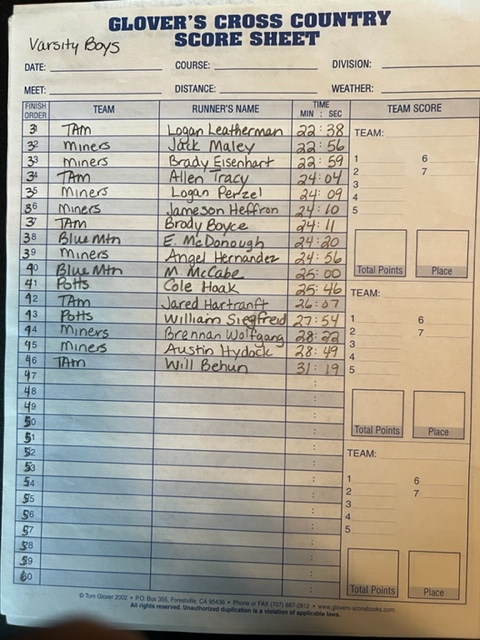 GLOVER'S CROSS COUNTRY
SCORE SHEET
Varsity Boys
DATE: COURSE: DIVISION:
MEET: DISTANCE: WEATHER:
FINISH ORDER TEAM RUNNER'S NAME TIME MIN : SEC TEAM SCORE
31 TAm Logan Leatherman 22:38
32 miners Jack Maley 22:56
33 miners Brady Eisenhart 22:59
34 TAm Allen Tracy 24:04
35 miners Logan Perzel 24:09
36 Miners Jameson Heffron 24:10
37 TAm Brody Boyce 24:11
38 Blue Mtn E. McDonough 24:20
39 Miners Angel Hernandez 24:56
40 Blue Mtn M. McCabe 25:00
41 Potts Cole Hoak 25:46
42 TAm Jared Hartranft 26:07
43 Potts William Siegfreid 27:54
44 Miners Brennan Wolfgang 28:22
45 Miners Austin Hydock 28:49
46 TAm Will Behun 31:19
47 :
48 :
49 :
50 :
51 :
52 :
53 :
54 :
55 :
56 :
57 :
58 :
59 :
60 :
TEAM:
1 6
2 7
3
4
5
Total Points Place
TEAM:
1 6
2 7
3
4
5
Total Points Place
TEAM:
1 6
2 7
3
4
5
Total Points Place
© Tom Glover 2002 • P.O. Box 355, Forestville, CA 95436 • Phone or FAX (707) 887-2812 • www.glovers-scorebooks.com
All rights reserved. Unauthorized duplication is a violation of applicable laws.